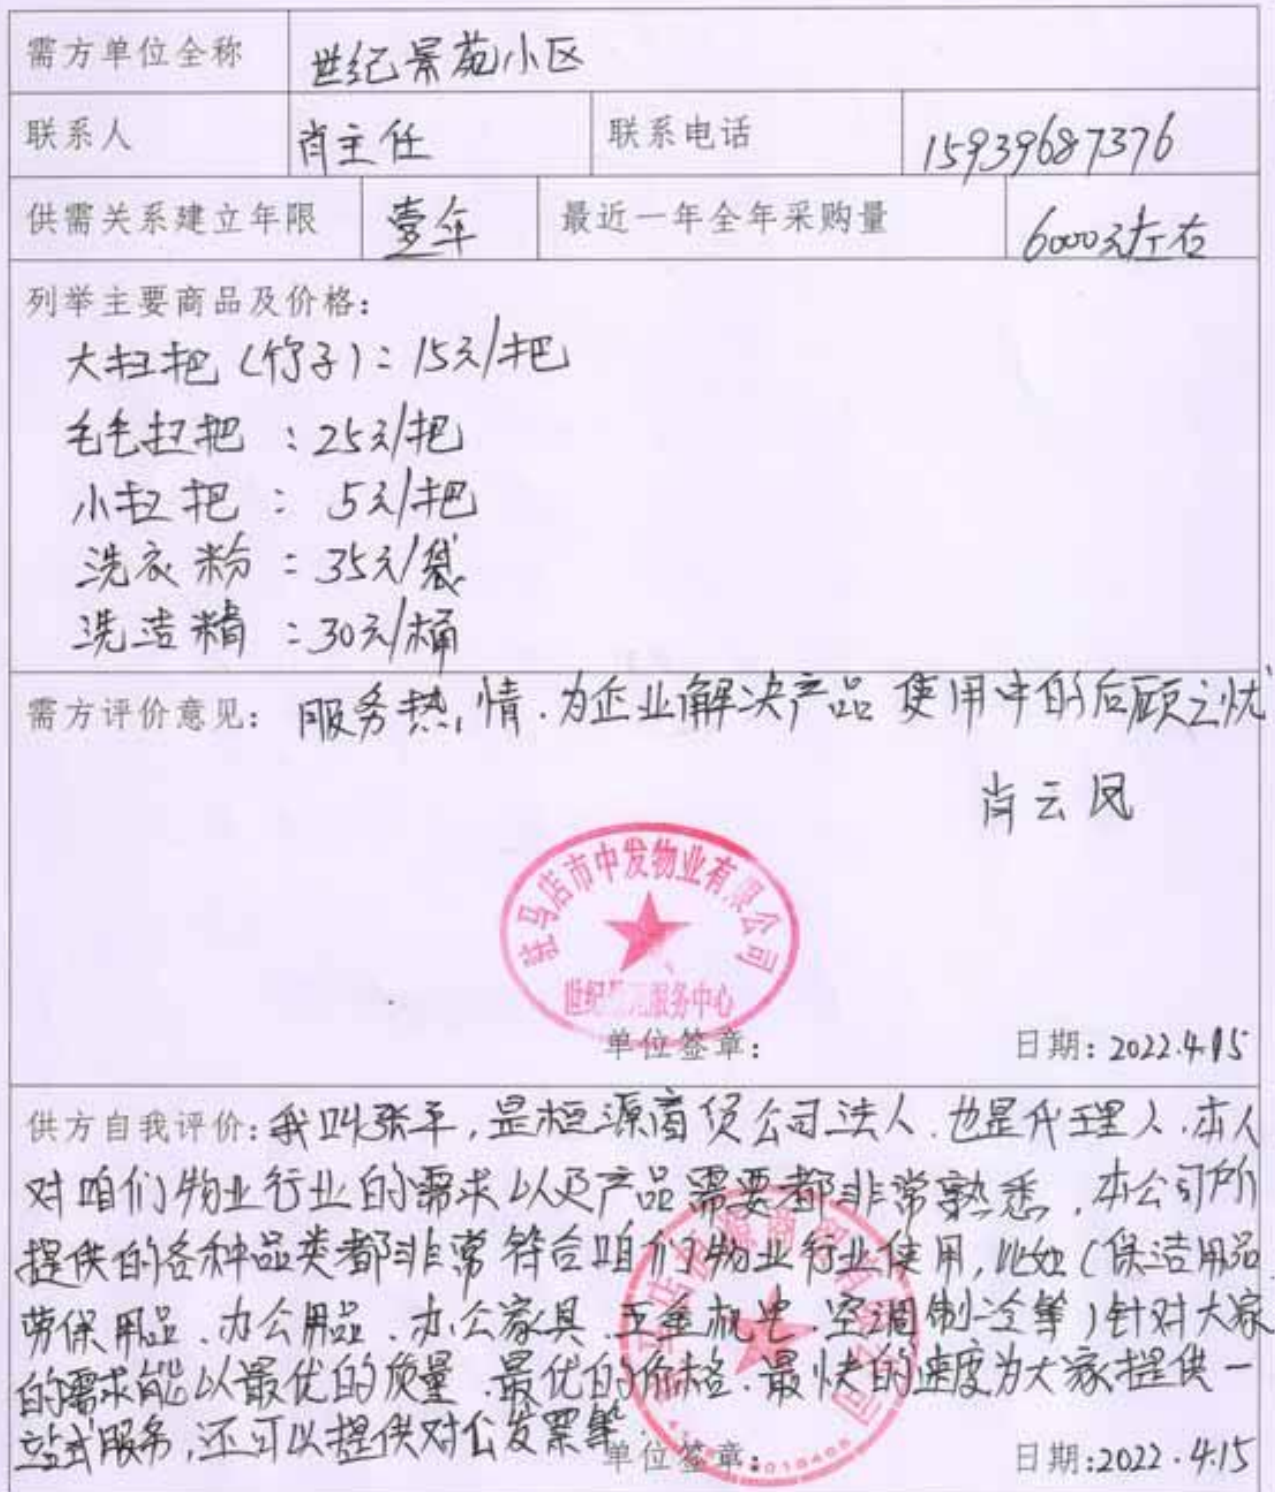 需方单位全称 世纪景苑小区
联系人 肖主任 联系电话 15939687376
供需关系建立年限 壹年 最近一年全年采购量 6000元左右
列举主要商品及价格:
大扫把(竹子):15元/把
毛毛扫把:25元/把
小扫把:5元/把
洗衣粉:35元/袋
洗洁精:30元/桶
需方评价意见: 服务热情.为企业解决产品使用中的后顾之忧
肖云凤
驻马店市中发物业有限公司
世纪服务中心
单位签章: 日期:2022.4.15
供方自我评价:我叫张平,是桓源商贸公司法人.也是代理人.本人
对咱们物业行业的需求以及产品需要都非常熟悉,本公司所
提供的各种品类都非常符合咱们物业行业使用,比如(保洁用品
劳保用品、办公用品、办公家具、五金机电、空调制冷等)针对大家
的需求能以最优的质量、最优的价格、最快的速度为大家提供一
站式服务,还可以提供对公发票等.
单位签章: 日期:2022.4.15